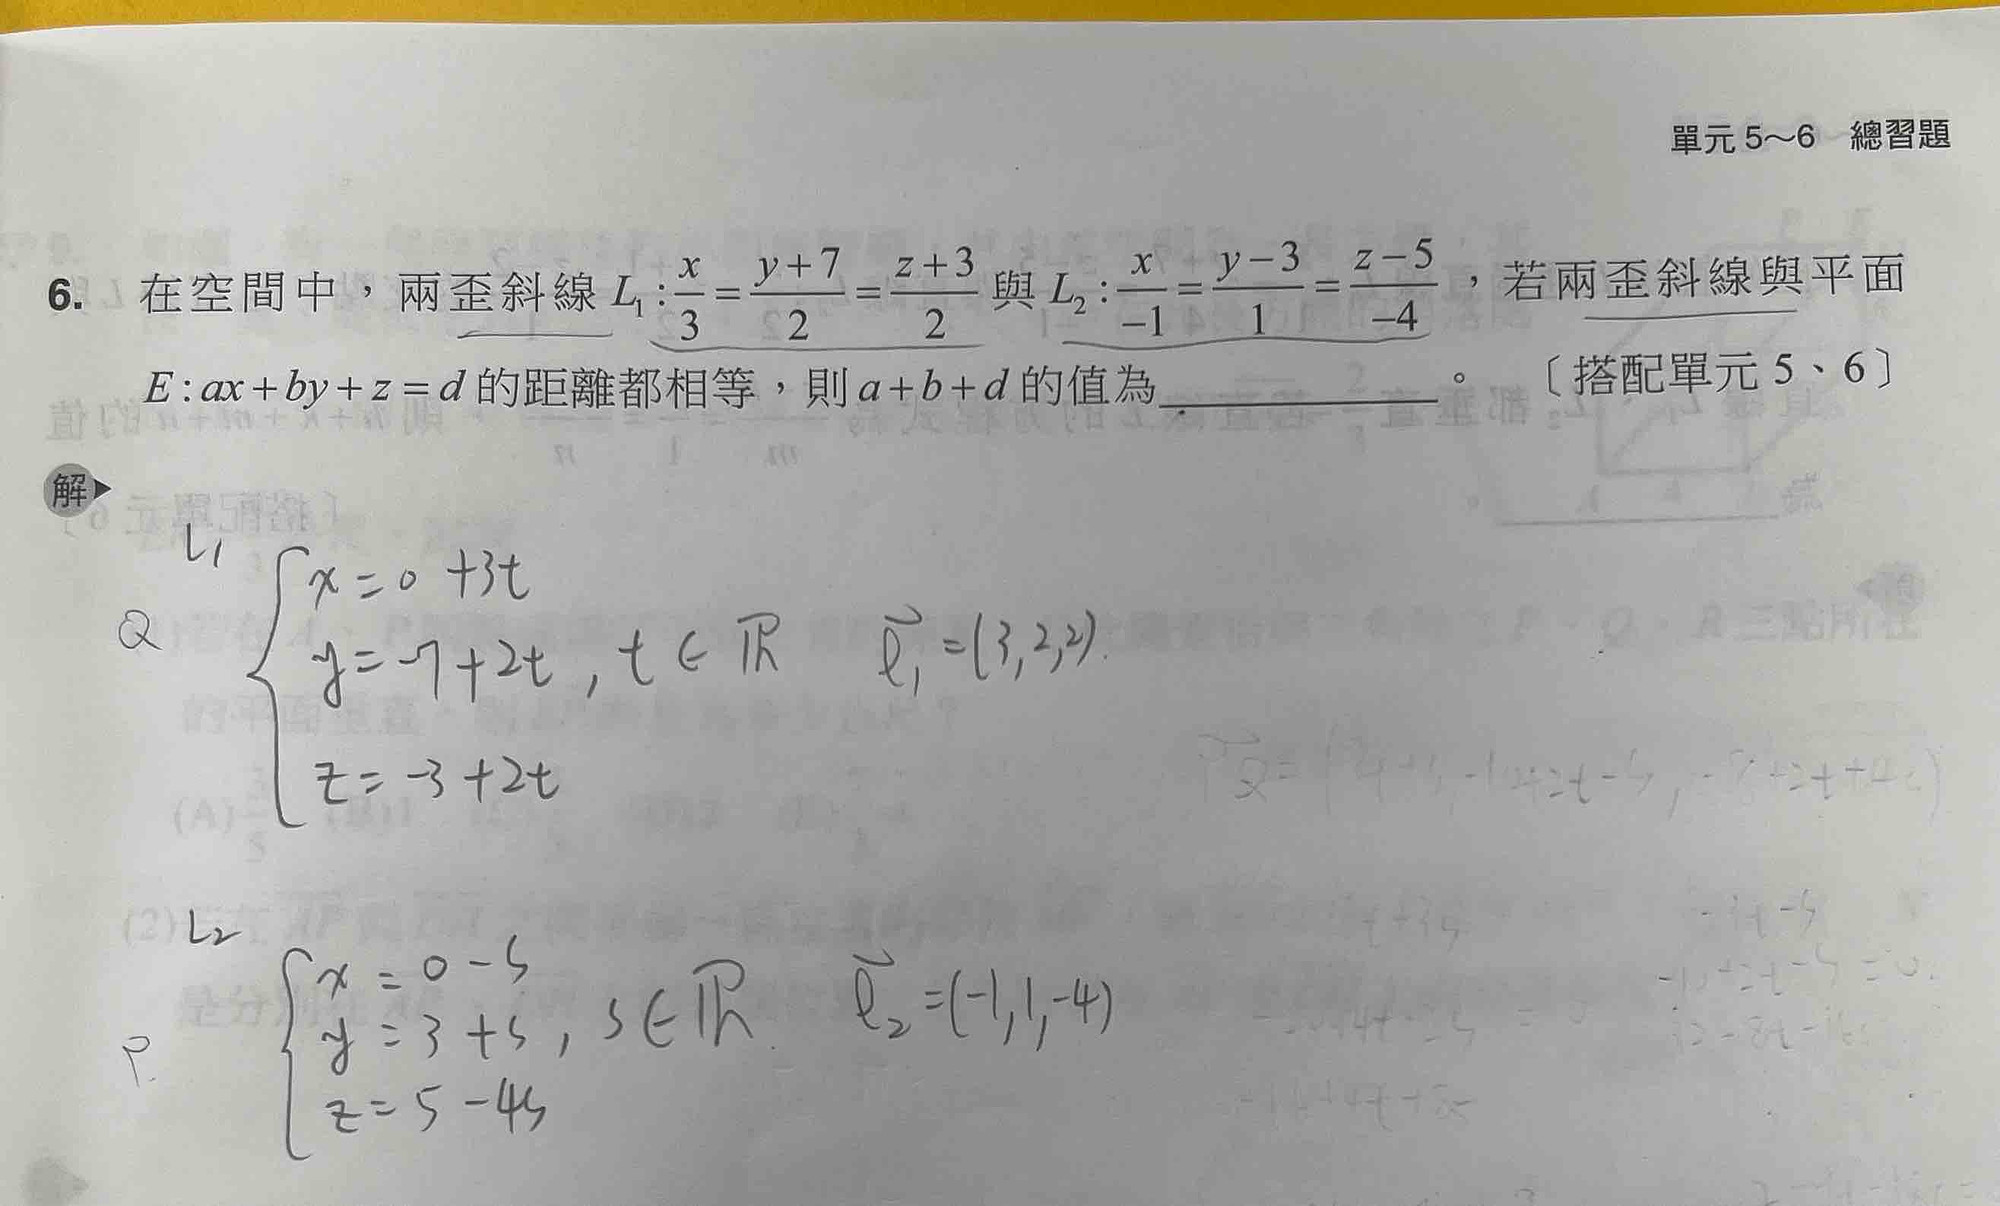 單元 5～6 總習題
6. 在空間中，兩歪斜線 L₁ : x/3 = (y+7)/2 = (z+3)/2 與 L₂ : x/−1 = (y−3)/1 = (z−5)/−4，若兩歪斜線與平面
E : ax+by+z=d 的距離都相等，則 a+b+d 的值為________。〔搭配單元 5、6〕
解
L₁
x = 0 +3t
Q y = -7+2t , t ∈ ℝ l⃗₁ = (3,2,2).
z = -3 +2t
L₂
x = 0 - s
P. y = 3 + s , s ∈ ℝ l⃗₂ = (-1,1,-4)
z = 5 - 4s